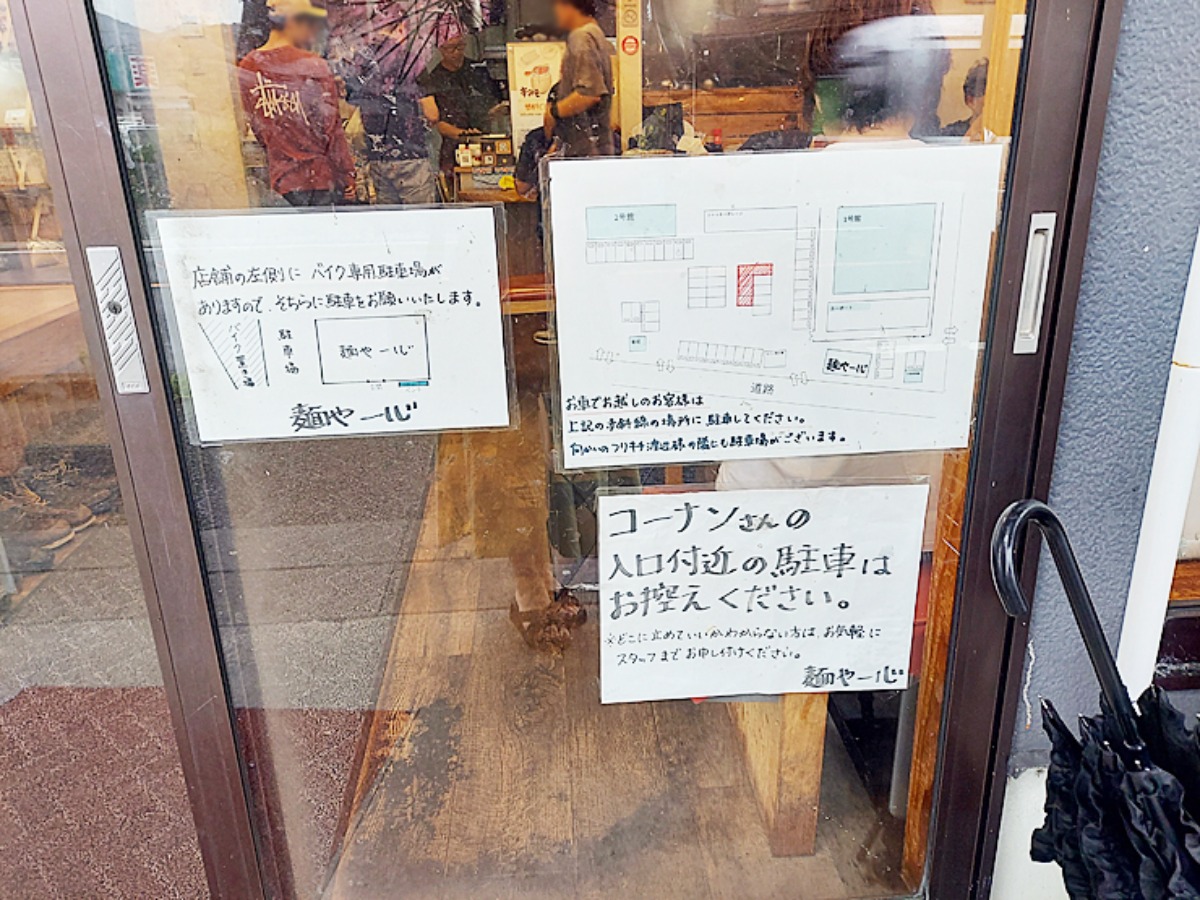 店舗の左側に バイク専用駐車場が
ありますので、そちらに駐車をお願いいたします。
バイク置き場
駐車場
麺や一心
麺や一心
2号館
1号館
麺や一心
道路
お車でお越しのお客様は
上記の赤斜線の場所に駐車してください。
向かいのツリキチ渡辺様の隣にも駐車場がございます。
コーナンさんの
入口付近の駐車は
お控えください。
※どこに止めていいかわからない方は、お気軽に
スタッフまでお申し付けください。
麺や一心